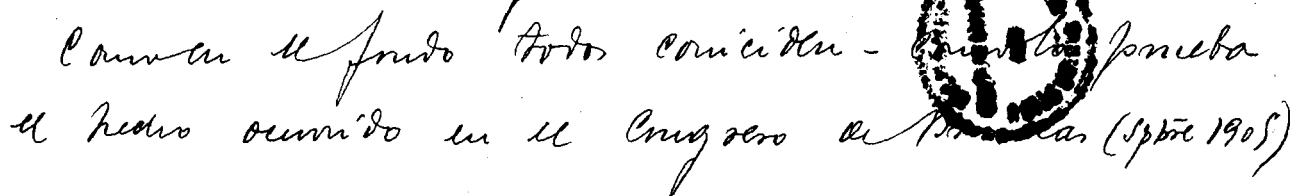 Como en el fondo todos coinciden - como lo prueba
el hecho ocurrido en el Congreso de Bruselas (Spbre 1905)